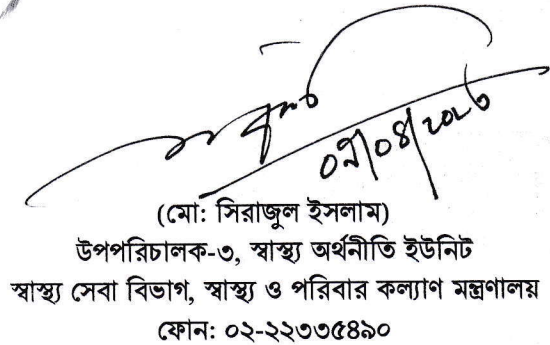 (মো: সিরাজুল ইসলাম)
উপপরিচালক-৩, স্বাস্থ্য অর্থনীতি ইউনিট
স্বাস্থ্য সেবা বিভাগ, স্বাস্থ্য ও পরিবার কল্যাণ মন্ত্রণালয়
ফোন: ০২-২২৩৩৫৪৯০